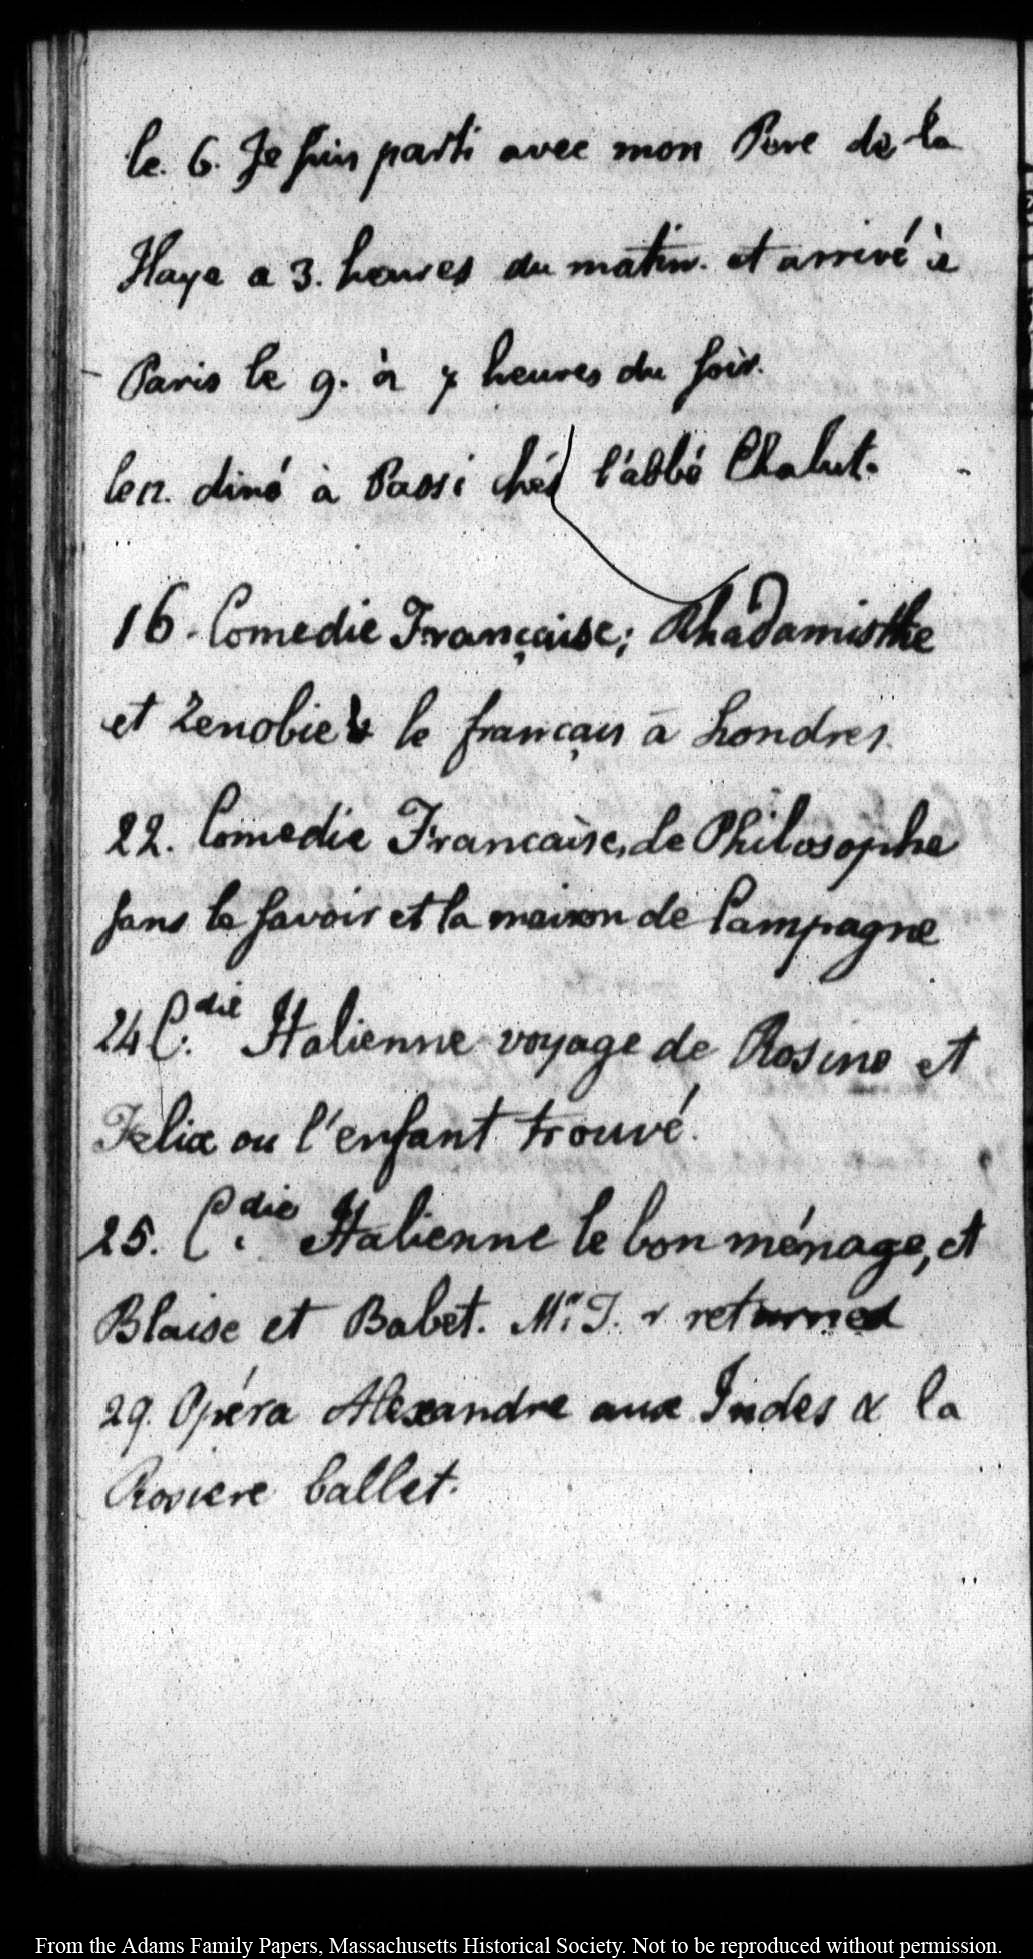 le. 6. Je suis parti avec mon Pere de la
Haye a 3. heures du matin. et arrivé à
Paris le 9. à 7 heures du soir.
le 12. diné à Passi chés l'abbé Chalut.
16. Comedie Française; Rhadamisthe
et Zenobie & le français à Londres.
22. Comedie Francaise, le Philosophe
sans le savoir et la maison de Campagne
24 C.die Italienne voyage de Rosine et
Felix ou l'enfant trouvé.
25. C.die Italienne le bon ménage, et
Blaise et Babet. Mr. T. r returned
29. Opéra Alexandre aux Indes & la
Rosiere ballet.
From the Adams Family Papers, Massachusetts Historical Society. Not to be reproduced without permission.